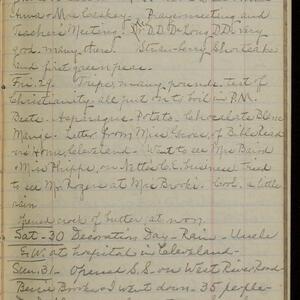 Anna & Mrs Coskey. Prayer meeting and
Teachers Meeting. D.D. DeLong D.D. Very
good. many there. Strawberry Shortcake
and first green peas.
Fri. 29. Tripe, many pounds. test of
Christianity. all put on to boil in P.M.
Beets - Asparagus - Potato - Chocolate Blanc
Mange. Letter from Miss Grove, of
Home, Cleveland - Went to see Mrs Baird
Mrs Phipps, on Nettie C.E. business tried
to see Mr Rogers at Mrs Brooks. Cool, a little
rain
Opened crock of butter at noon.
Sat - 30 Decoration Day - Rain - Uncle
E.W. at hospital in Cleveland -
Sun. 31 - Opened S.S. on West River Road -
Bernie Brooks & I went down - 35 people